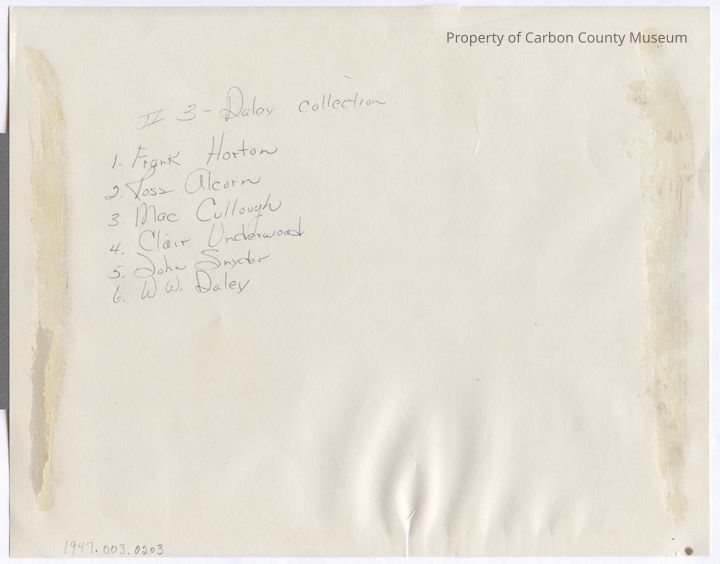 Property of Carbon County Museum
II 3 - Daley collection.
1. Frank Horton
2. Joss Alcorn
3. Mac Cullough
4. Clair Underwood
5. John Snyder
6. W. W. Daley
1947.003.0203